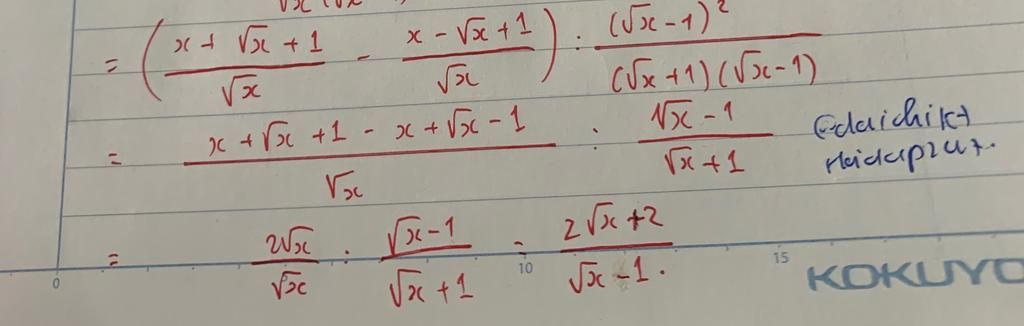 = ( (x + √x + 1)/√x - (x - √x + 1)/√x ) : (√x - 1)²/((√x + 1)(√x - 1))
= (x + √x + 1 - x + √x - 1)/√x : (√x - 1)/(√x + 1)
= 2√x/√x : (√x - 1)/(√x + 1) = (2√x + 2)/(√x - 1).
0 10 15 KOKUYO